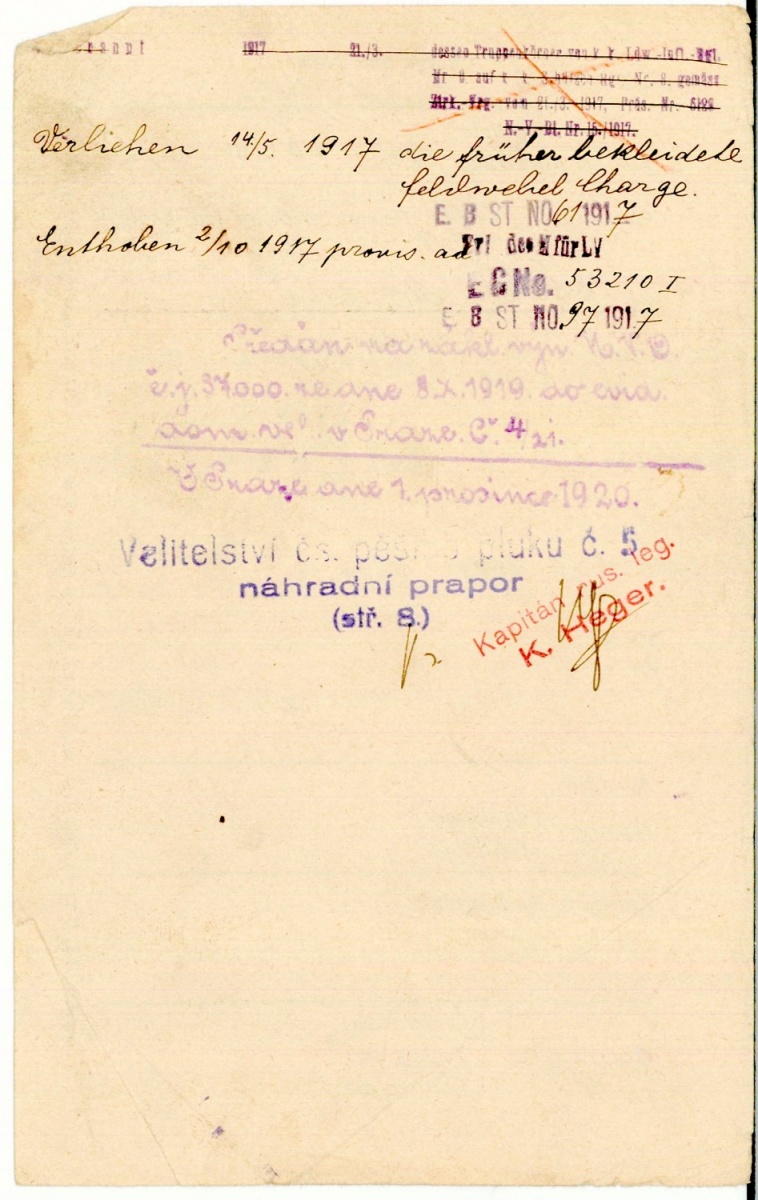 1917 21./3. dessen Truppenkörper von k. k. Ldw.-Inft.-Rgt.
Nr 8 auf k. k. Schützen-Rgt. Nr. 8. gemäss
Zirk.-Vrg. vom 21./3. 1917, Präs. Nr.
N.-V.-Bl. Nr. 15./1917.
Verliehen 14/5. 1917 die früher bekleidete
feldwebel Charge.
E. B ST NO 61 1917
Enthoben 2/10 1917 provis. ad
Erl des M für LV
E C No. 53210 I
E B ST NO. 97 1917
Předán na zákl. výn. M.N.O.
č.j. 37.000. ze dne 8.X.1919. do evid.
dom. vel. v Praze. Č. 4/21.
V Praze dne 1. prosince 1920.
Velitelství čs. pěšího pluku č. 5
náhradní prapor
(stř. 8.)
Kapitán rus. leg.
K. Heger.